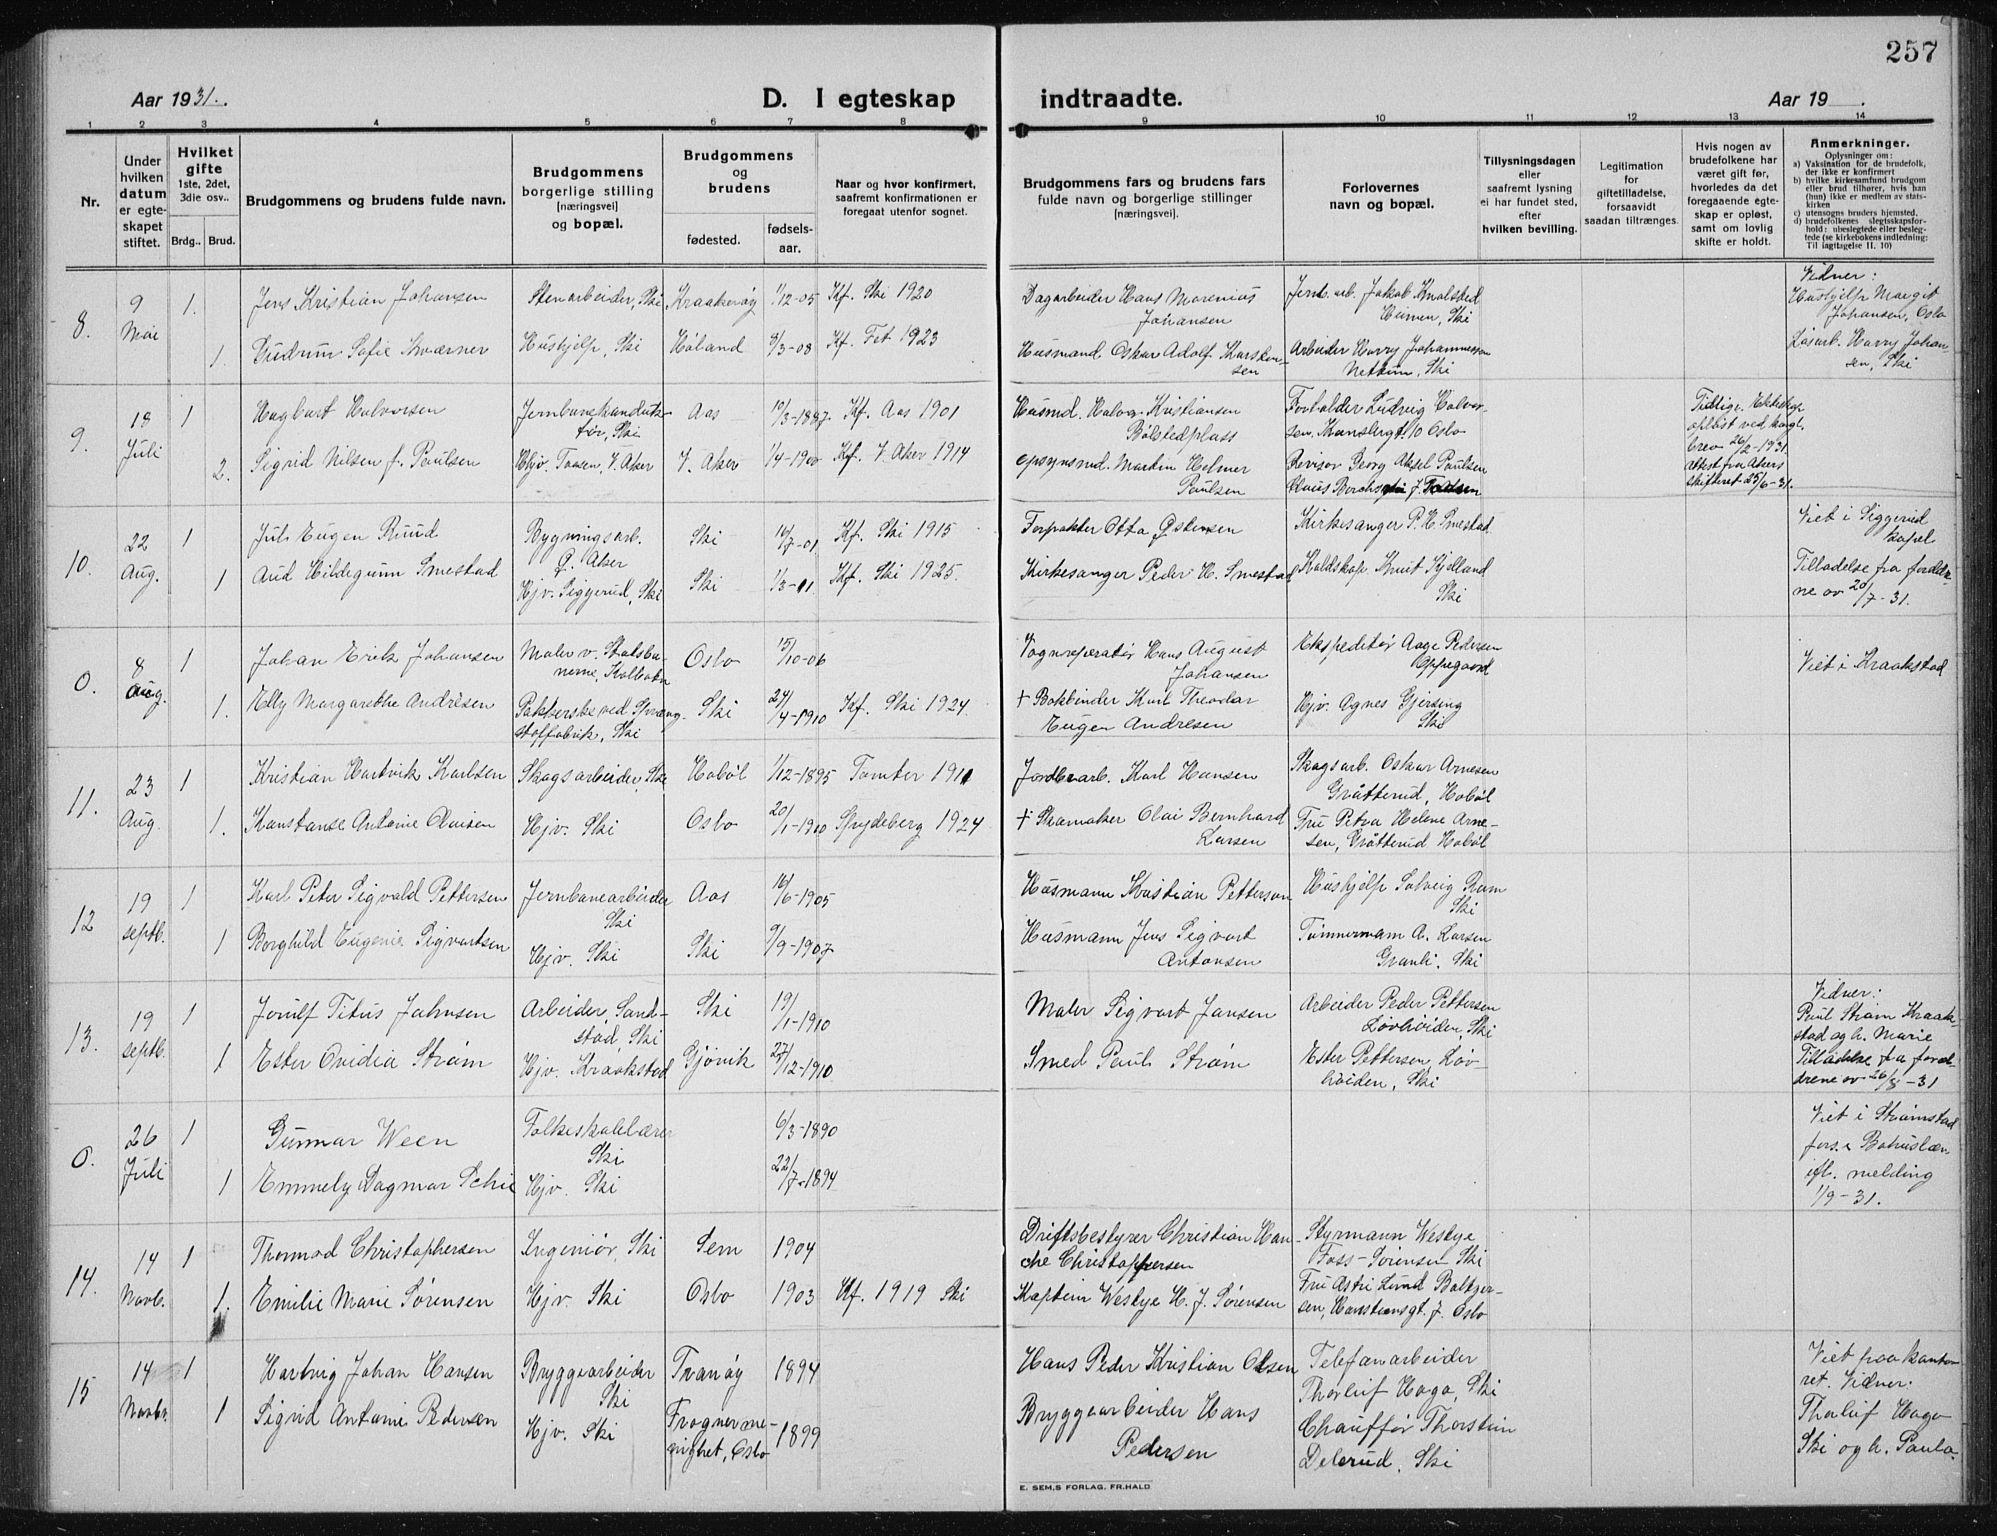 257
Aar 1931.
D. I egteskap
indtraadte.
Aar 19 .
1 2 3 4 5 6 7 8 9 10 11 12 13 14
Nr.
Under
hvilken
datum
er egte-
skapet
stiftet.
Hvilket
gifte
1ste, 2det,
3die osv..
Brdg.. Brud.
Brudgommens og brudens fulde navn.
Brudgommens
borgerlige stilling
[næringsvei]
og bopæl.
Brudgommens
og
brudens
fødested.
fødsels-
aar.
Naar og hvor konfirmert,
saafremt konfirmationen er
foregaat utenfor sognet.
Brudgommens fars og brudens fars
fulde navn og borgerlige stillinger
[næringsvei].
Forlovernes
navn og bopæl.
Tillysningsdagen
eller
saafremt lysning
ei har fundet sted,
efter
hvilken bevilling.
Legitimation
for
giftetilladelse,
forsaavidt
saadan tiltrænges.
Hvis nogen av
brudefolkene har
været gift før,
hvorledes da det
foregaaende egte-
skap er opløst,
samt om lovlig
skifte er holdt.
Anmerkninger.
Oplysninger om:
a) Vaksination for de brudefolk,
der ikke er konfirmert
b) hvilke kirkesamfund brudgom
eller brud tilhører, hvis han
(hun) ikke er medlem av stats-
kirken
c) utensogns bruders hjemsted,
d) brudefolkenes slegtsskapsfor-
hold: ubeslegtede eller besleg-
tede (se kirkebokens indledning:
Til iagttagelse II. 10)
8.
9
Mai
1.
Jens Kristian Johansen
Stenarbeider, Ski
Kraakerøy
1/12-05
Kf. Ski 1920
Dagarbeider Hans Marenius
Johansen
Jernb. arb. Jakob Knalstad
Humen, Ski
Vidner:
Hushjelp Margit
Johansen, Oslo
1.
Gudrun Sofie Kværner
Hushjelp, Ski
Høland
8/3-08
Kf. Fet 1923
Husmand Oskar Adolf Karsten-
sen
Arbeider Harry Johannessen
Nettum, Ski
Harry Johan-
sen, Ski
9.
18
Juli
1
Hagbart Halvorsen
Jernbanekonduk-
tør, Ski
Aas
10/3-1887.
Kf. Aas 1901
Husmd. Halvor Kristiansen
Bølstedplass
Forvalder Ludvig Halvor-
sen, Kanslergt. 10 Oslo
Tidlige. Ekteskap
opløst ved kongl.
brev 26/2-1931.
attest fra Akers
skifteret 25/6-31.
2.
Sigrid Nilsen f. Paulsen
Hjv. Taasen, V. Aker
V. Aker
1/4-1900
Kf. V. Aker 1914
opsynsmd. Martin Helmer
Paulsen
Revisor Georg Aksel Paulsen
Claus Borchs
10.
22
Aug.
1
Jul. Eugen Ruud
Bygningsarb.
Ø. Aker
Ski
10/7-01
Kf. Ski 1915
Forpakter Otto Østensen
Kirkesanger P. H. Smestad
Viet i Siggerud
kapel
1
Aud Hildegunn Smestad
Hjv. Siggerud, Ski
Ski
1/3-11
Kf. Ski 1925.
Kirkesanger Peder H. Smestad
Knut Kjelland
Ski
Tilladelse fra foreldre-
ne av 20/7-31.
0.
8
Aug.
1
Johan Erik Johansen
Maler v. Statsba-
nerne, Kolbotn
Oslo
15/10-06
Vognreperatør Hans August
Johansen
Ekspeditør Aage Pedersen
Oppegaard
Viet i Kraakstad
1.
Elly Margarethe Andrésen
Pakkerske ved Spreng-
stoffabrik, Ski
Ski
24/4-1910
Kf. Ski 1924
+ Bokbinder Karl Theodor
Eugen Andresen
Hjv. Agnes Gjersing
Ski
11.
23
Aug.
1
Kristian Hartvik Karlsen
Skogsarbeider, Ski
Hobøl
1/12-1895
Tomter 1911
Jordbr.arb. Karl Hansen
Skogsarb. Oskar Arnesen
Gråtterud, Hobøl
1.
Konstanse Antonie Olaisen
Hjv. Ski
Oslo
20/1-1910
Spydeberg 1924
+ Skomaker Olai Bernhard
Larsen
Fru Petra Helene Arne-
sen, Gråtterud Hobøl
12
19
septb.
1
Karl Peter Sigvald Pettersen
Jernbanearbeider
Ski
Aas
16/6-1905
Husmann Kristian Petterson
Hushjelp Solveig Ram
Ski
1
Borghild Eugenie Sigvartsen
Hjv. Ski
Ski
9/9-1907
Husmann Jens Sigvart
Antonsen
Tømmermam A. Larsen
Granli, Ski
13.
19
septb.
1
Jørulf Titus Johnsen
Arbeider, Sand-
stad, Ski
Ski
19/1-1910
Maler Sigvart Jansen
Arbeider Peder Pettersen
Løvhøiden, Ski
Vidner:
Paul Strøm Kraak-
stad og h. Marie
Tilladelse fra foreld-
drene av 26/8-31
1
Ester Ovidia Strøm
Hjv. Kraakstad
Gjøvik
27/12-1910
Smed Paul Strøm
Ester Pettersen, Løv-
høiden, Ski
0.
26
Juli
1
Gunnar Ween
Folkeskolelærer
Ski
6/3-1890
Viet i Strømstad
fors. i Bohuslæn
ifl. melding
1/9-31.
1
Emmely Dagmar Schie
Hjv. Ski
22/7-1894
14.
14
Novb.
1
Thormod Christophersen
Ingeniør, Ski
Sem
1904
Driftsbestyrer Christian Han-
che Christophersen
Styrmann Westye
Foss-Sørensen Ski
1.
Emilie Marie Sørensen
Hjv. Ski
Oslo
1903
Kf. 1919 Ski
Kaptein Westye H. J. Sørensen
Fru Astri Lund Baltzer-
sen, Hansteensgt. 7. Oslo
15
14
Novbr.
1
Hartvig Johan Hansen
Bryggearbeider
Ski
Tranøy
1894
Hans Peder Kristian Olsen
Telefonarbeider
Thorleif Haga, Ski
Viet paa konto-
ret. Vidner:
Thorleif Haga
Ski og h. Paula.
1
Sigrid Antonie Pedersen
Hjv. Ski
Frogner me-
nighet, Oslo
1899
Bryggearbeider Hans
Pedersen
Chauffør Thorstein
Delerud, Ski
E. SEM,S FORLAG, FR.HALD